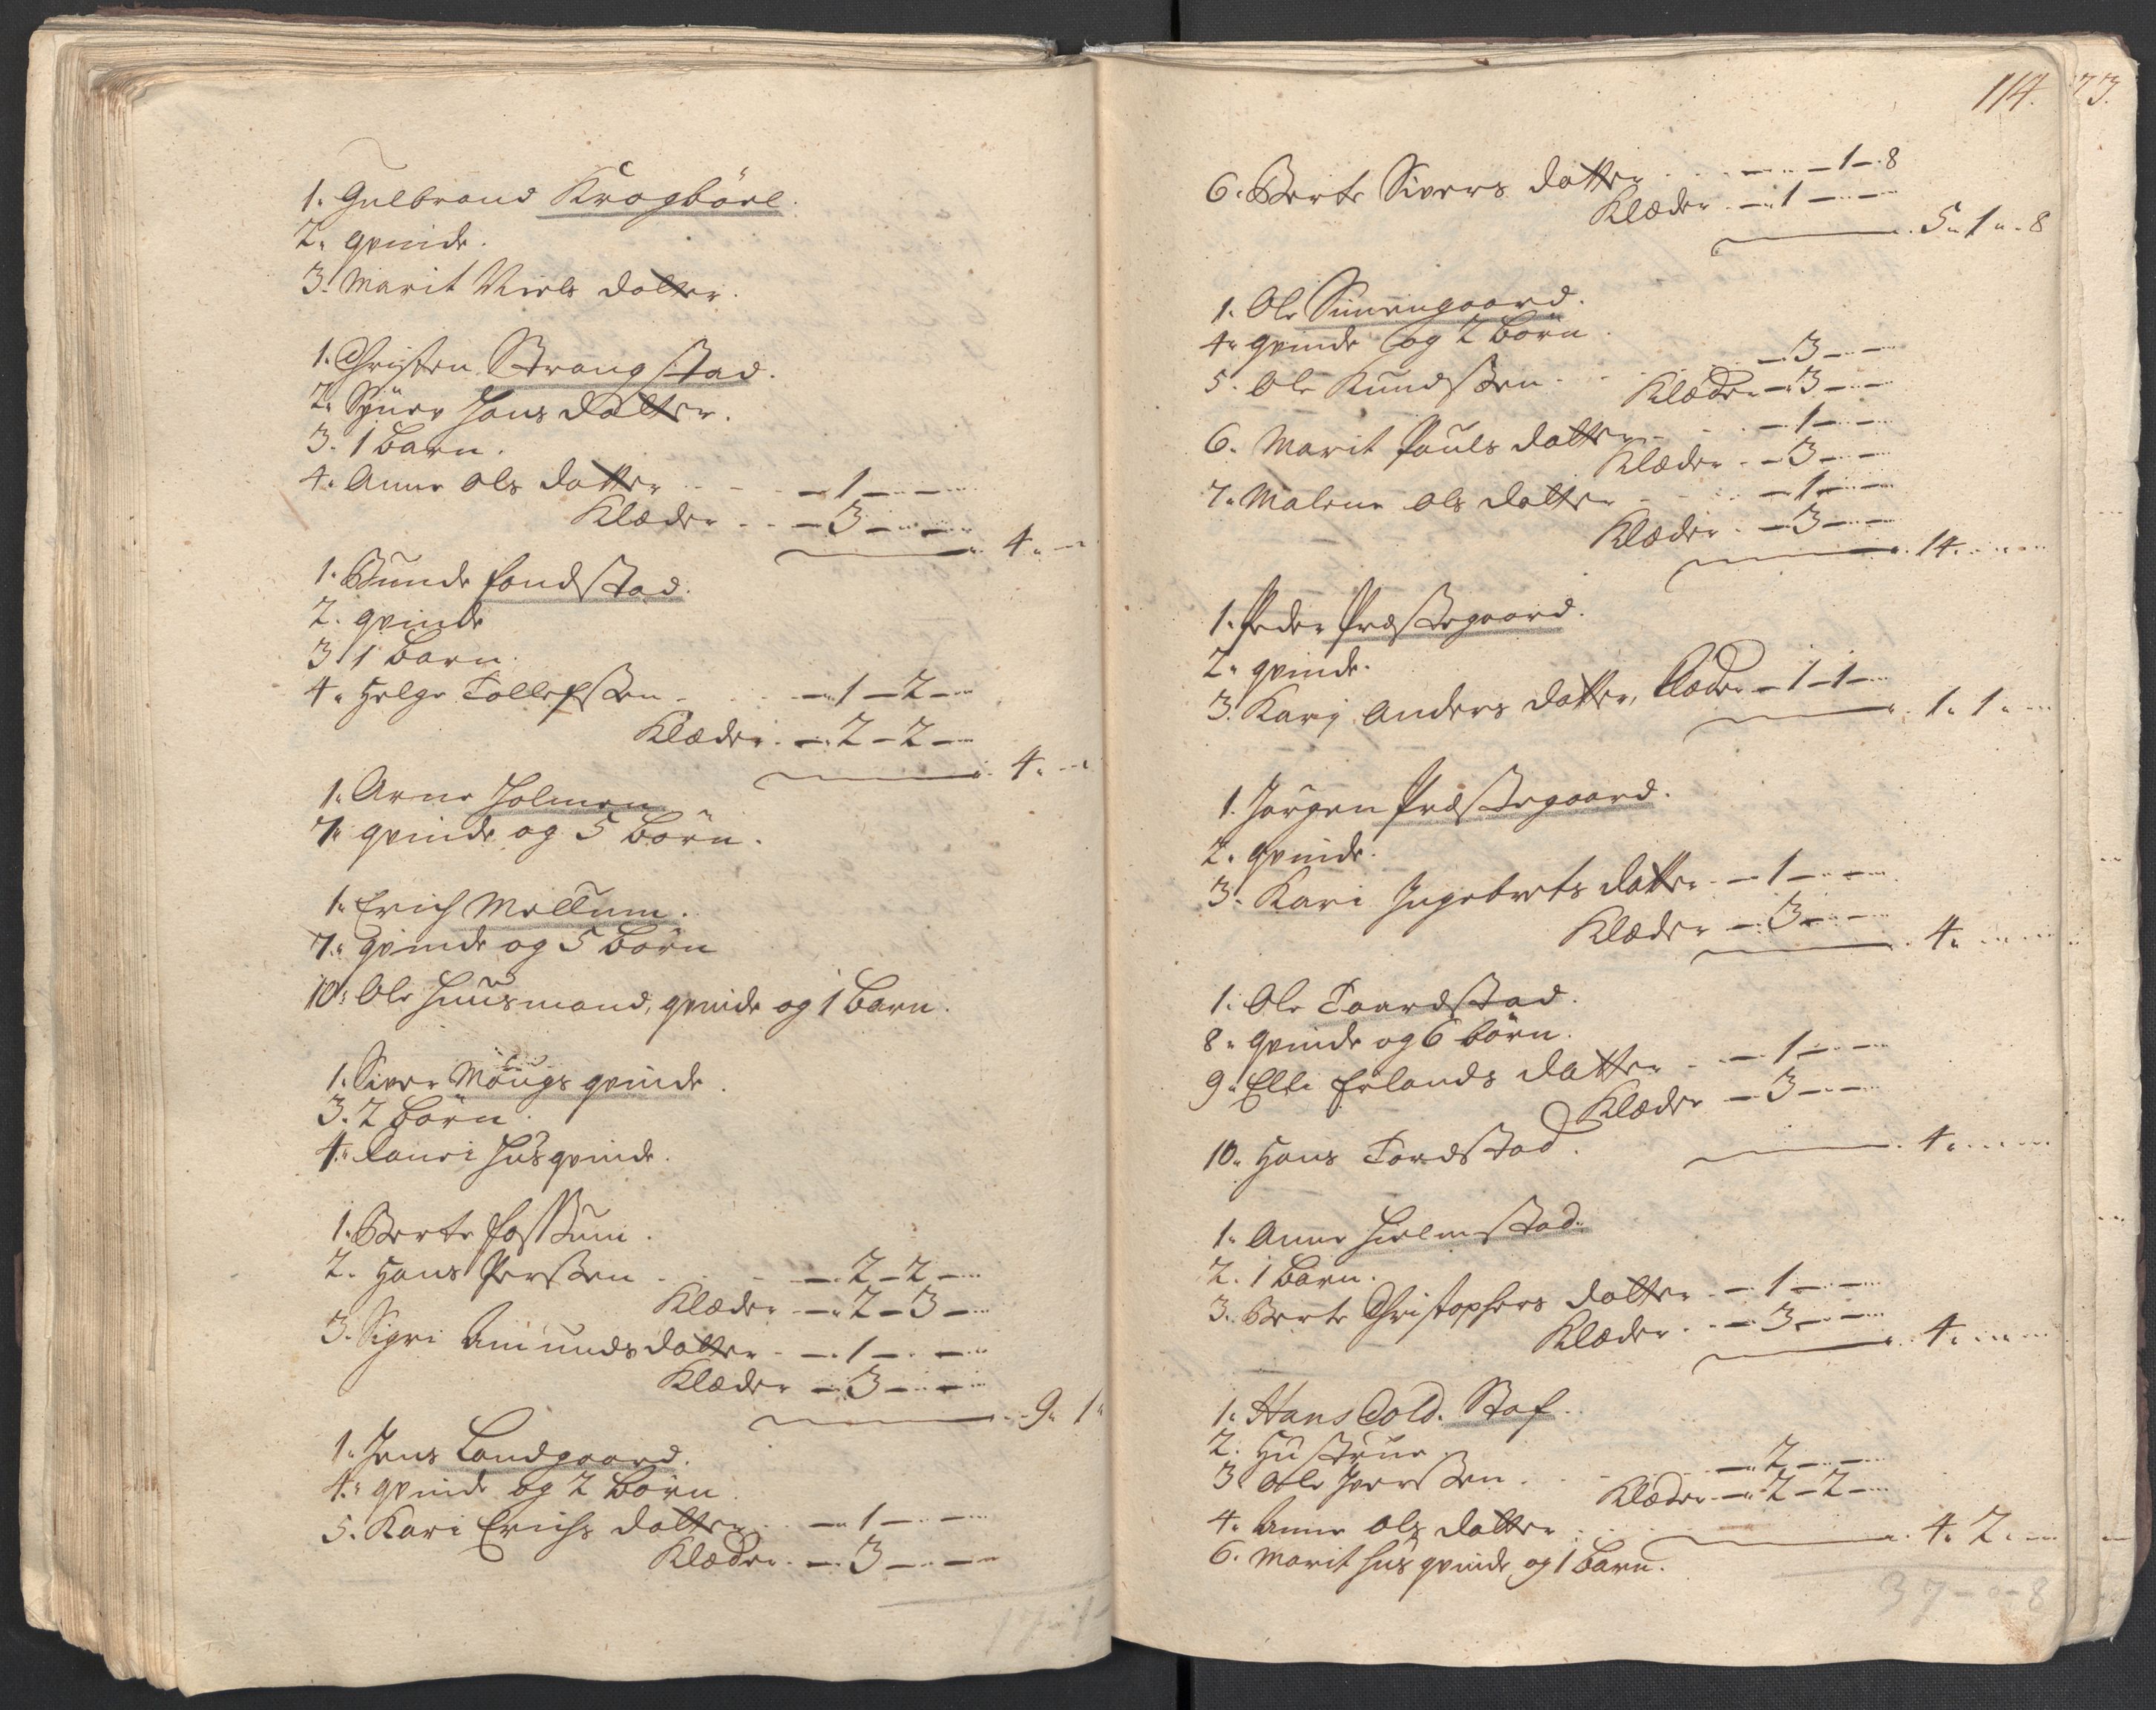 1. Gulbrand Krogböel.
2. qvinde.
3. Marit Niels datter.
1. Christen Strangstad.
2. Hans datter.
3. 1 Barn.
4. Anne Ols datter - 1 -
Klæder - 3 -
4.
1. Gunde Fondstad.
2. qvinde
3. 1 Barn.
4. Helge Tollefsen - 1 - 2 -
Klæder - 2 - 2 -
4.
1. Arne Holmen
7. qvinde og 5 Börn.
1. Erich Mellum.
7. qvinde og 5 Börn
10. Ole Huusmand, qvinde og 1 Barn.
1. Siver Mougs qvinde.
3. 2 Börn.
4. Lauri Husqvinde.
1. Berte Fossum.
2. Hans Perssen - 2 - 2 -
Klæder - 2 - 3 -
3. Sigri Amunds datter - 1 -
Klæder - 3 -
9. 1.
1. Jens Landgaard.
4. qvinde og 2 Börn.
5. Kari Erichs datter - 1 -
Klæder - 3 -
114.
73.
6. Berte Sivers datter - 1 - 8
Klæder - 1 -
5. 1. 8
1. Ole Simengaard.
4. qvinde og 2 Börn.
5. Ole Knudssen - 3 -
Klæder - 3 -
6. Marit Pouls datter - 1 -
Klæder - 3 -
7. Malene Ols datter - 1 -
Klæder - 3 -
14.
1. Peder Præstegaard.
2. qvinde.
3. Karj Anders datter, Klæder - 1 - 1 -
1. 1.
1. Jörgen Præstegaard.
2. qvinde.
3. Kari Ingebrets datter - 1 -
Klæder - 3 -
4.
1. Ole Taardstad.
8. qvinde og 6 börn.
9. Elli Erlands datter - 1 -
Klæder - 3 -
10. Hans Tordstad.
4.
1. Anne Hielmstad.
2. 1 Barn.
3. Berte Christophers datter - 1 -
Klæder - 3 -
4.
1. Hans Cold. Staf.
2. Hustrue
3. Ole Iverssen - 2 -
Klæder - 2 - 2 -
4. Anne Ols datter
4. 2.
6. Marit Husqvinde og 1 Barn.
37 - 0 - 8